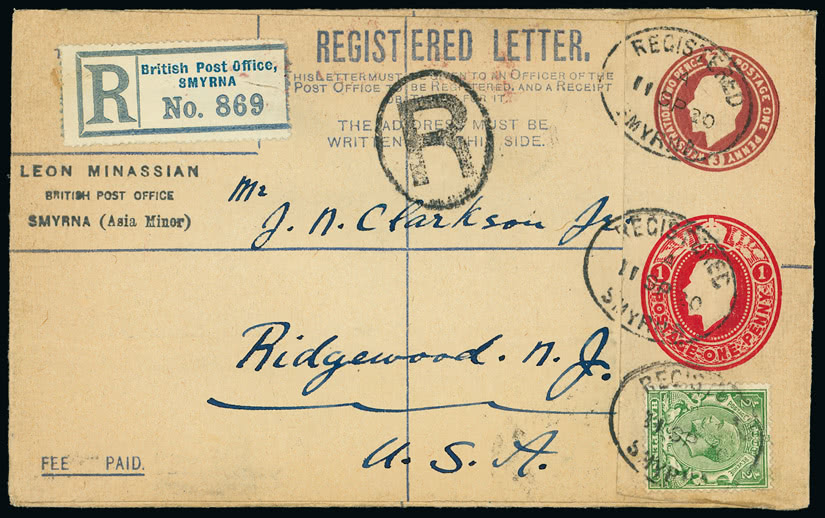 REGISTERED LETTER.
THIS LETTER MUST BE GIVEN TO AN OFFICER OF THE
POST OFFICE TO BE REGISTERED, AND A RECEIPT
FOR IT.
THE ADDRESS MUST BE
WRITTEN ON THIS SIDE.
R
British Post Office,
SMYRNA
No. 869
LEON MINASSIAN
BRITISH POST OFFICE
SMYRNA (Asia Minor)
R
Mr
J. N. Clarkson Jr
Ridgewood. N. J.
U. S. A.
FEE PAID.
REGISTERED
11 SP 20
SMYRNA
POSTAGE ONE PENNY
REGISTERED
11 SP 20
SMYRNA
1
1
POSTAGE ONE PENNY
REGIS
11 SP
SMYR